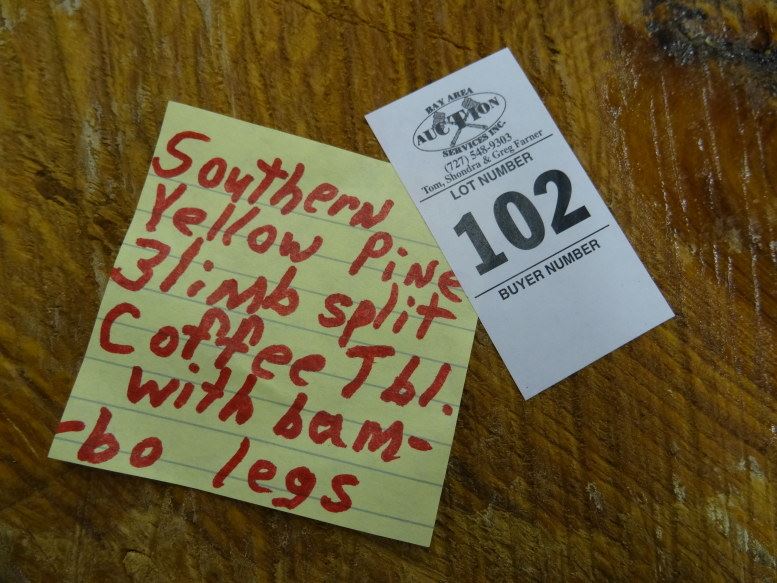 Southern
Yellow Pine
3limb split
Coffee Tbl.
with bam-
-bo legs
BAY AREA
AUCTION
SERVICES INC.
(727) 548-9303
Tom, Shondra & Greg Farner
LOT NUMBER
102
BUYER NUMBER